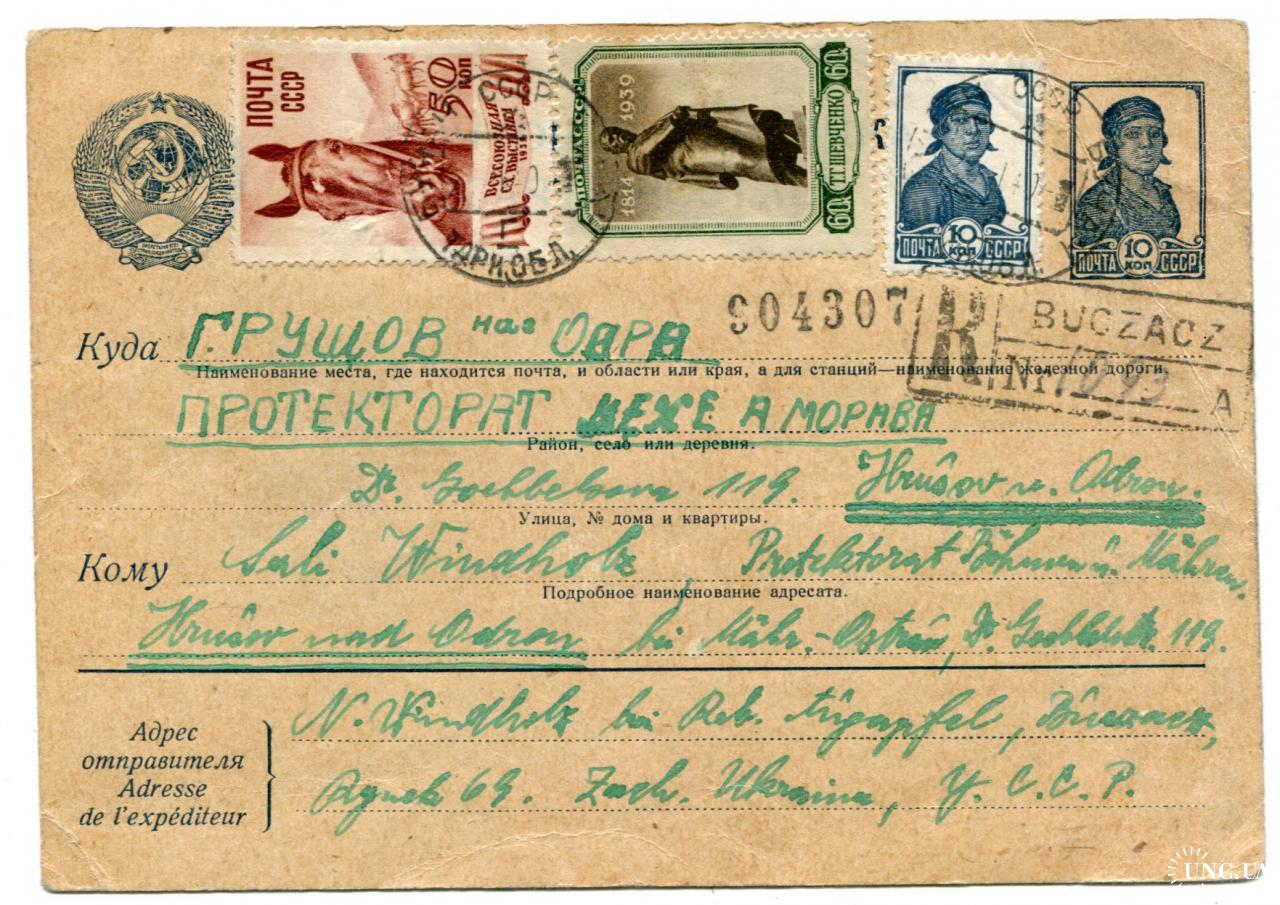 ПОЧТА СССР 50 КОП ВСЕСОЮЗНАЯ С.Х. ВЫСТАВКА
ПОЧТА СССР 1814 1939 60 Т.Г. ШЕВЧЕНКО 60
10 ПОЧТА КОП СССР
10 ПОЧТА КОП СССР
СССР
ОБЛ.
904307
R BUCZACZ
Nr 1093 A
Куда Г.РУШОВ над ОДРА
Наименование места, где находится почта, и области или края, а для станций—наименование железной дороги.
ПРОТЕКТОРАТ ЧЕХЕ А МОРАВА
Район, село или деревня.
Dr. Goebbelsova 119. Hrušov n. Odrou.
Улица, № дома и квартиры.
Кому Sali Windholz, Protektorat Böhmen u. Mähren.
Подробное наименование адресата.
Hrušov nad Odrou bei Mähr.-Ostrau, Dr. 119.
Адрес отправителя
Adresse de l'expéditeur
N. Windholz bei Reb. Buczacz,
69. Zach. Ukraina, У. С. С. Р.
UNC.UA